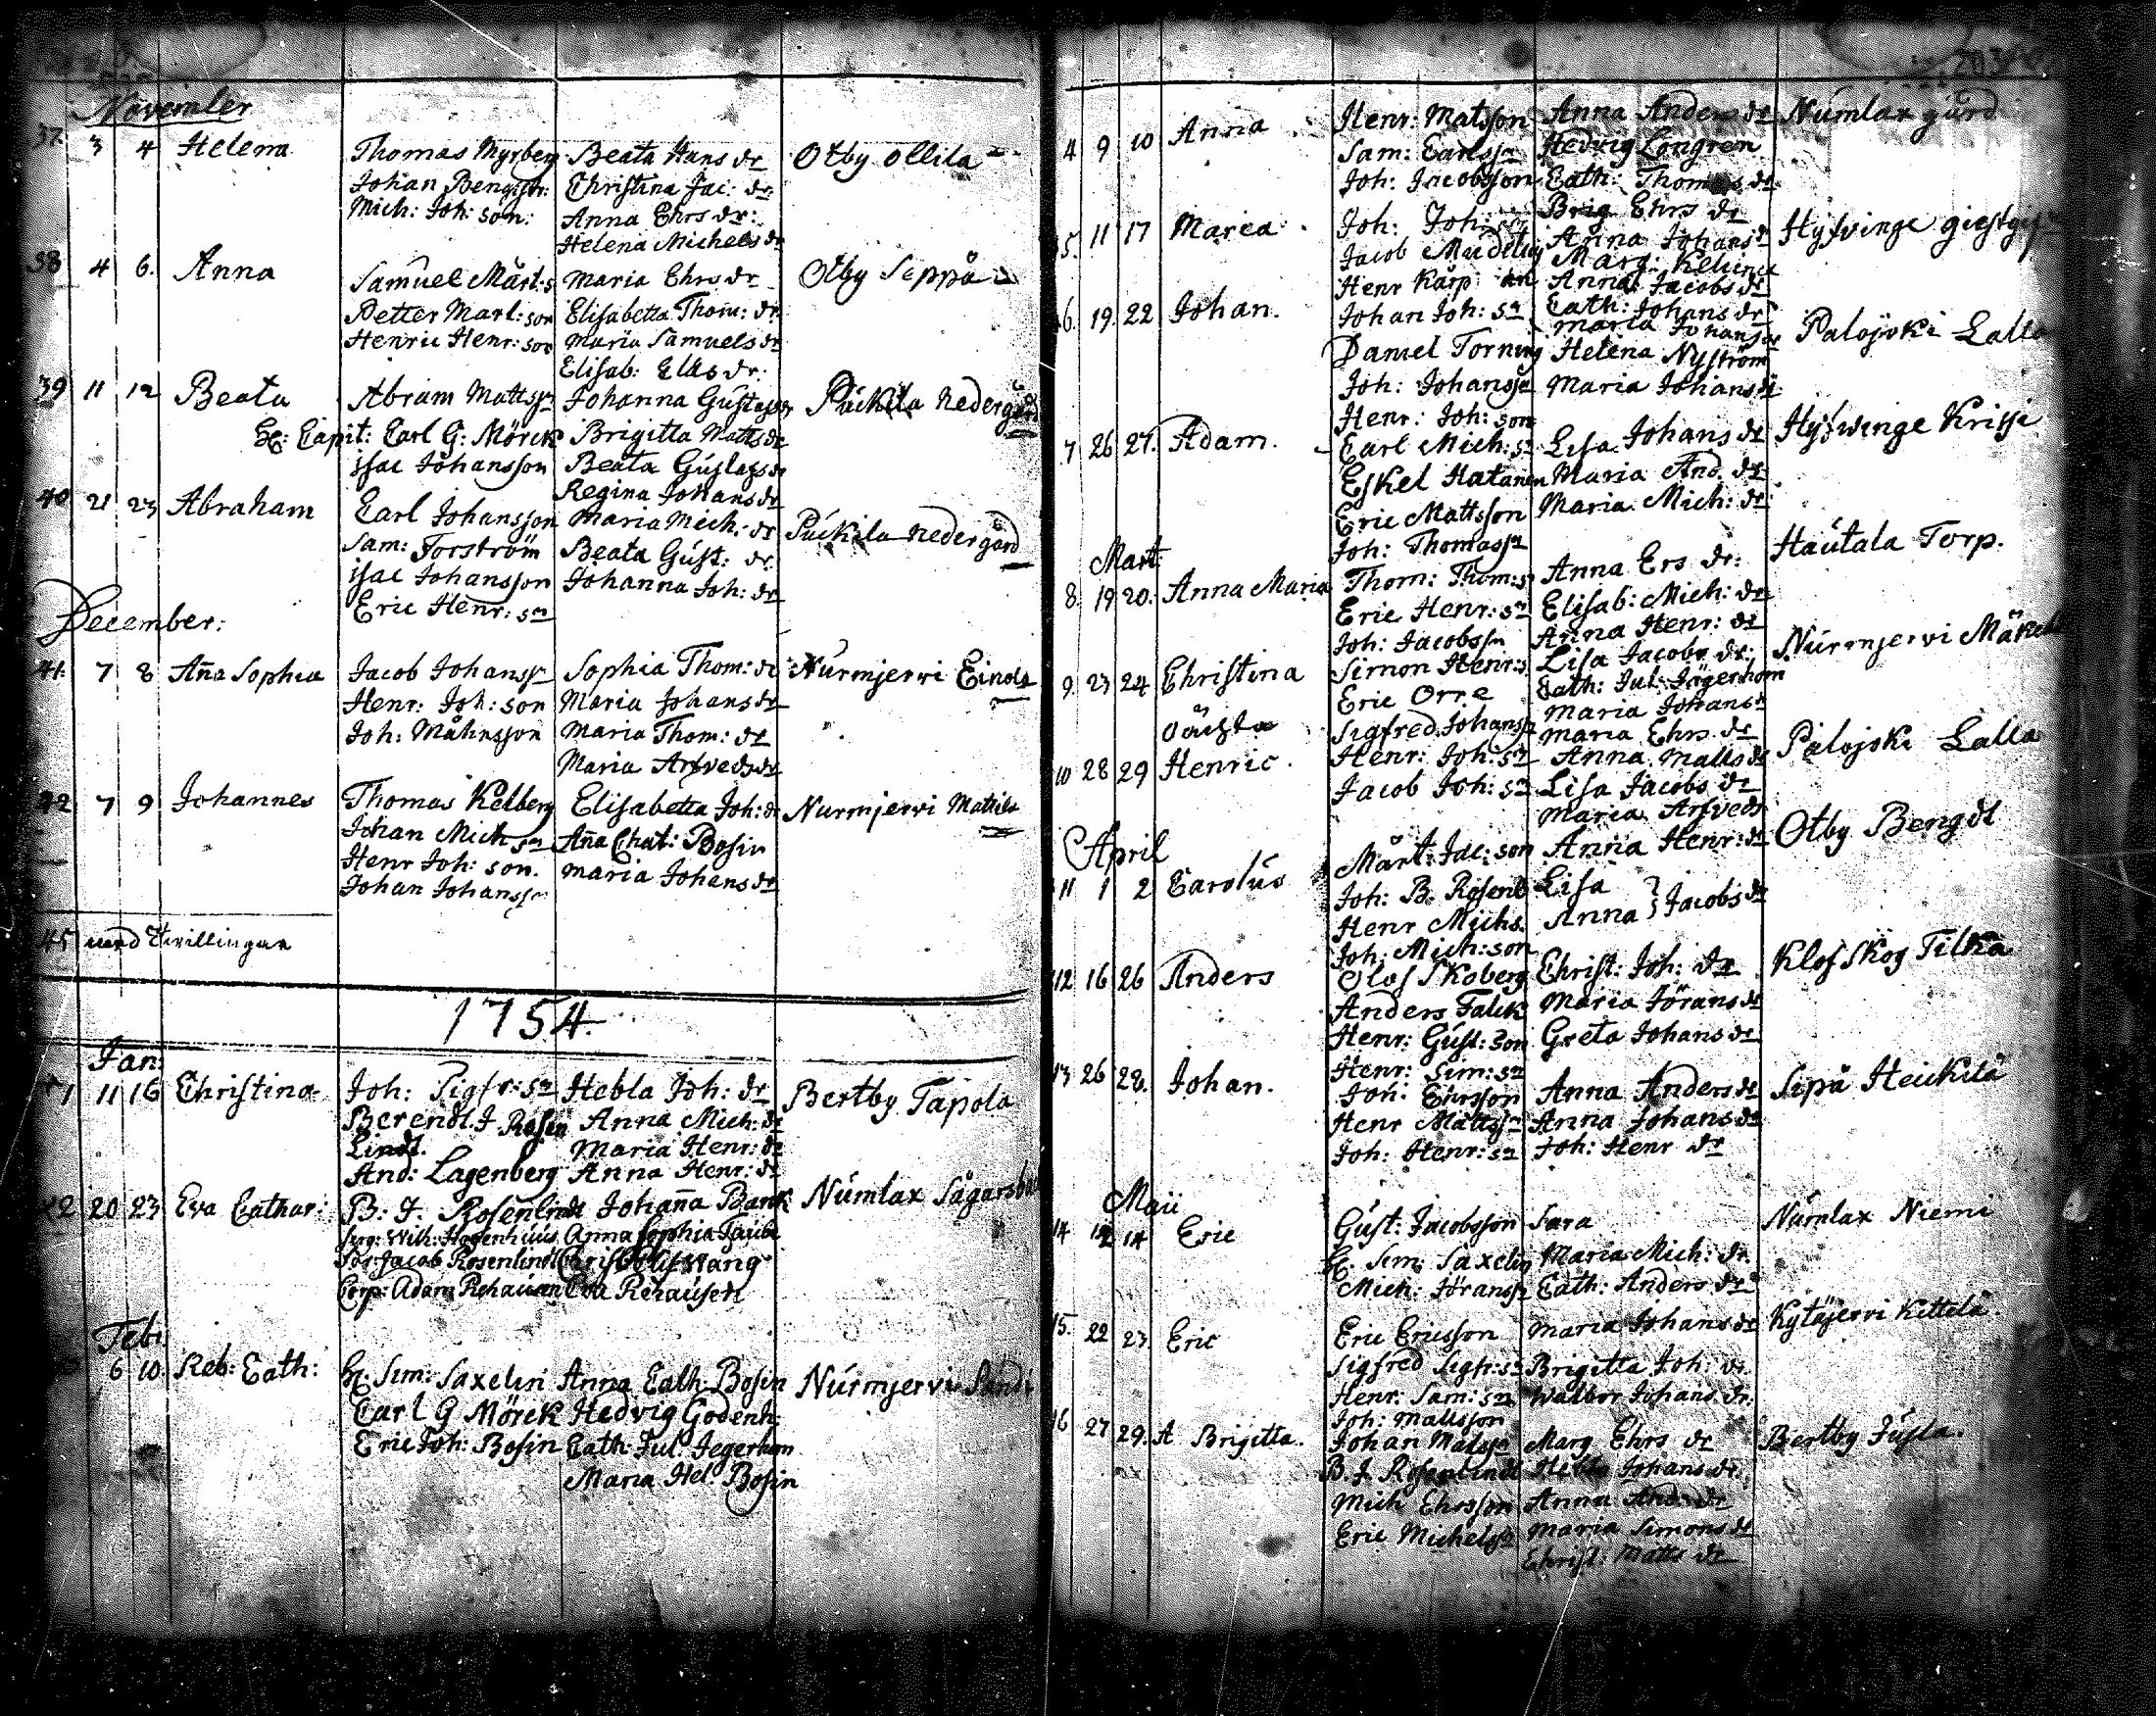 November
37. 3 4 Helena Thomas Myrberg Beata Hans dr Otby Ollila
Johan Bengtsr: Christina Jac: dr
Mich: Joh: son: Anna Ehrs dr:
Helena Michels dr
38 4 6. Anna Samuel Mårt:s Maria Ehrs dr Otby Seppä
Petter Marl: son Elisabetta Thom: dr
Henric Henr: son Maria Samuels dr
Elisab: Elias dr:
39 11 12 Beata Abram Mattssn Johanna Gustafs dr Puckila nedergård
H: Capit: Carl G: Mörck Brigitta Matts dr
Isac Johansson Beata Gustafs dr
Regina Johans dr
40 21 23 Abraham Carl Johansson Maria Mich: dr Puckila nedergård
Sam: Forström Beata Gust: dr.
Isac Johansson Johanna Joh: dr
Eric Henr: sn
December:
41. 7 8 Aña Sophia Jacob Johanssn Sophia Thom: dr Nurmjervi Einola
Henr: Joh: son Maria Johans dr
Joh: Måhnsson Maria Thom: dr
Maria Arfveds dr
42 7 9 Johannes Thomas Kelberg Elisabetta Joh: dr Nurmjervi Mattila
Johan Mich sn Aña Chat: Bosin
Henr Joh: son. Maria Johans dr
Johan Johanssn
45 med Tvillingar
1754.
Jan:
1 11 16 Christina Joh: Sigfr: sn Hebla Joh: dr Bertby Tapola
Berendt J Rosen Anna Mich: dr
Lindt. Maria Henr: dr
And: Lagenberg Anna Henr: dr
2 20 23 Eva Cathar: B. J. Rosenlindt Johaña Banck Numlax Sågarsbacka
Serg: Wilh: Hogenhuus Anna Sophia Taube
Jacob Rosenlindt
Corp: Adam Rehausen Eva Rehausen
Feb:
6 10. Reb: Cath: H. Sim: Saxelin Anna Cath Bosin Nurmjervi
Carl G Mörck Hedvig Godenh:
Eric Joh: Bosin Cath: Jul Jegerhorn
Maria Hel: Bosin
203
4 9 10 Anna Henr: Matsson Anna Anders dr Numlax gård
Sam: Carlssn Hedvig Longren
Joh: Jacobsson Cath: Thomas dr
5. 11 17 Maria. Joh: Joh: sn Brig Ehrs dr Hyfvinge giestgif
Jacob Anna Johans dr
Henr Karp Marg:
Anna Jacobs dr
6. 19. 22 Johan. Johan Joh: sn Cath: Johans dr Palojoki Lalla
Daniel Torning Maria Johans dr
Helena Nyström
Joh: Johanssn Maria Johans dr
Henr: Joh: son
7 26 27. Adam. Carl Mich: sn Lisa Johans dr Hyfwinge Krissi
Eskel Hatanen Maria And. dr
Eric Mattsson Maria Mich: dr
Joh: Thomassn
Mart
8. 19 20. Anna Maria Thom: Thom: s Anna Ers dr: Hautala Torp.
Eric Henr: sn Elisab: Mich: dr
Joh: Jacobssn Anna Henr: dr
9. 23 24 Christina Simon Henr: s Lisa Jacobs dr: Nurmjervi
oächta Eric Orre Cath: Jul: Jägerhorn
Sigfred Johanssn Maria Johans dr
Maria Ehrs dr
10 28 29 Henric. Henr: Joh: sn Anna Matts dr Palojski Lalla
Jacob Joh: sn Lisa Jacobs dr
Maria Arfveds
April
11 1 2 Carolus Mårt: Jac: son Anna Henr: dr Otby Bengdt
Joh: B. Rosenl Lisa
Henr Michs. Anna } Jacobs dr
Joh: Mich: son
12 16 26 Anders Olof Skoberg Christ: Joh: dr Klofskog Tilka
Anders Falck Maria Jörans dr
Henr: Gust: son Greta Johans dr
Henr: Sim: sn
13 26 28. Johan. Joh: Ehrsson Anna Anders dr Sipä Heickilä
Henr Mattssn Anna Johans dr
Joh: Henr: sn Joh: Henr dr
Maii
14 12 14 Eric Gust: Jacobsson Sara Numlax Niemi
H. Sim: Saxelin Maria Mich: dr.
Mich: Jöranssn Cath: Anders dr
15. 22 23. Eric Eric Ericsson Maria Johans dr Kytäjervi Kittelä
Sigfred Sigfr: sn Brigitta Joh: dr.
Henr: Sam: sn Walbor Johans dr.
Joh: Mattsson
16 27 29. A Brigitta. Johan Matssn Marg Ehrs dr Bertby Jusla.
B. J. Rosenlindt Hebla Johans dr.
Mich Ehrsson Anna And: dr
Eric Michelssn Maria Simons dr
Christ: Matts dr